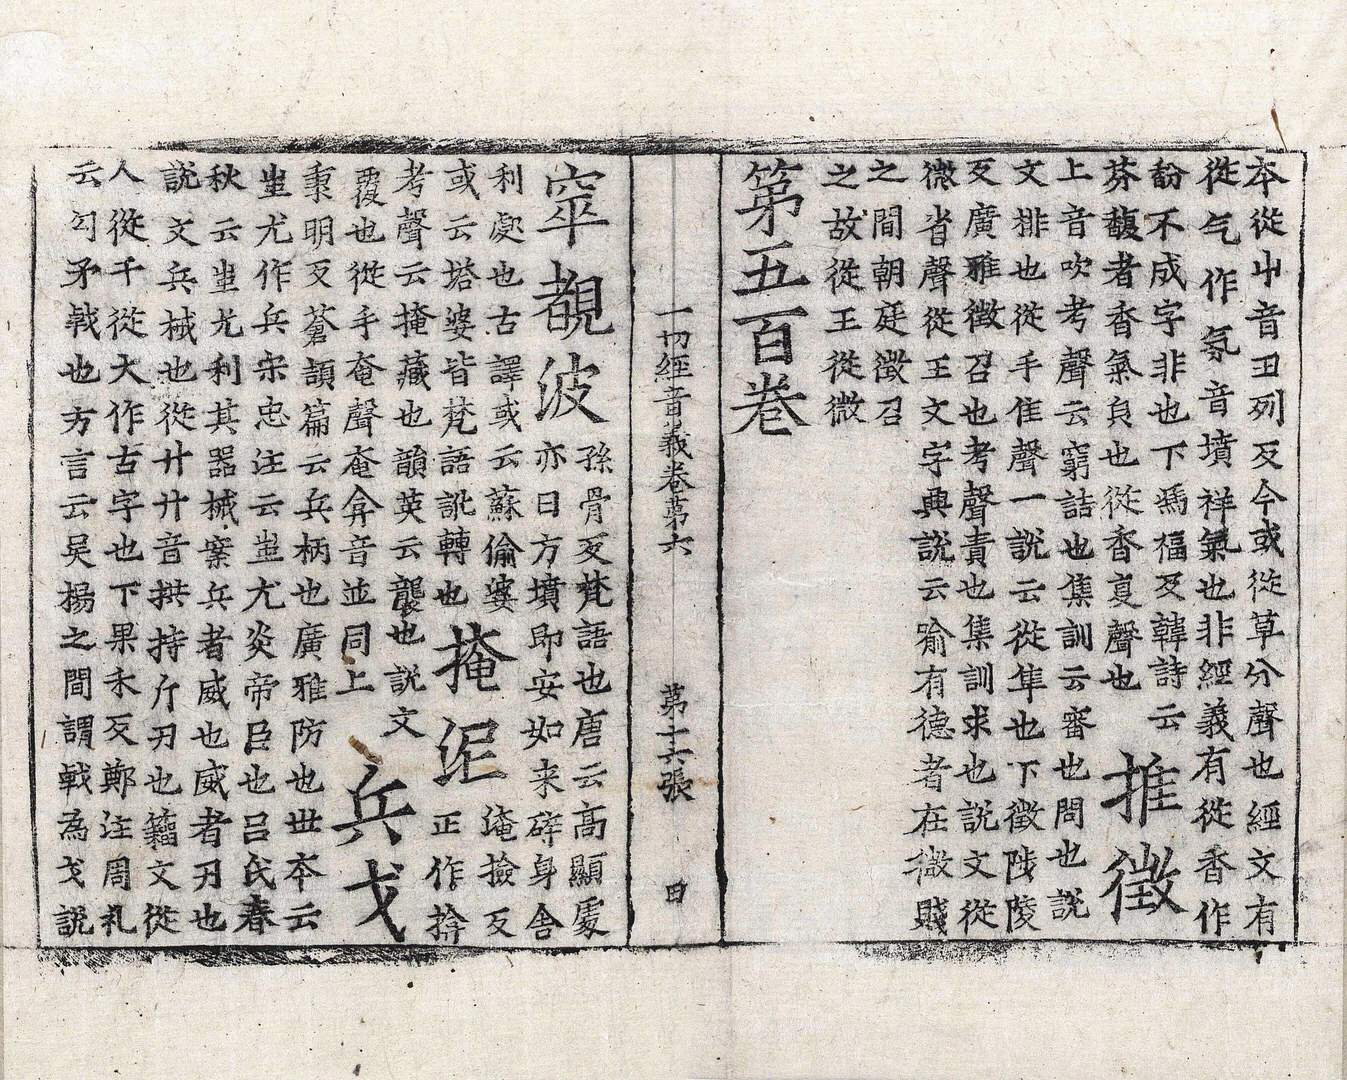 本從屮音丑列反今或從草分聲也經文有
從气作氛音墳祥氣也非經義有從香作
馚不成字非也下爲福反韓詩云
芬馥者香氣皃也從香复聲也
推徵
上音吹考聲云窮詰也集訓云審也問也說
文排也從手隹聲一說云從隼也下徵陟陵
反廣雅徵召也考聲責也集訓求也說文從
微省聲從王文字典說云喻有德者在微賤
之間朝廷徵召
之故從王從微
第五百卷
一切經音義卷第六 第十六張 日
窣覩波
孫骨反梵語也唐云高顯處
亦曰方墳即安如来碎身舍
利處也古譯或云蘇偷婆
或云塔婆皆梵語訛轉也
掩泥
淹撿反
正作揜
考聲云掩藏也韻英云襲也說文
覆也從手奄聲奄弇音並同上
兵戈
秉明反蒼頡篇云兵柄也廣雅防也世本云
蚩尤作兵宋忠注云蚩尤炎帝臣也吕氏春
秋云蚩尤利其器械案兵者威也威者刃也
說文兵械也從廾廾音拱持斤刃也籀文從
人從干從大作古字也下果禾反鄭注周礼
云勾矛戟也方言云吴揚之間謂戟為戈說